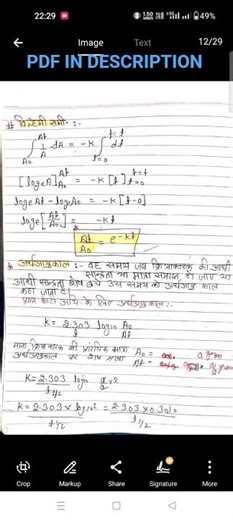 22:29
49%
Image Text 12/29
PDF IN DESCRIPTION
∫ 1/A dA = -K ∫ dt
A₀ t=0
[logeA] = -K [t]
logeAt - logeA₀ = -K[t-0]
loge[At/A₀] = -Kt
At/A₀ = e^-Kt
* अर्धआयुकाल :- वह समय जब क्रियाकारक की आधी
सान्द्रता या मात्रा समाप्त हो जाए या
आधी सान्द्रता शेष रहे उस समय को अर्धआयु काल
कहा जाता है।
प्रथम कोटि अभि. के लिए अर्धआयुकाल :-
K = 2.303/t log₁₀ A₀/At
माना क्रियाकारक की प्रारंभिक मात्रा A₀ =
अर्धआयुकाल पर शेष मात्रा At =
K = 2.303/t1/2 log₁₀ a/a ×2
K = 2.303 × log₁₀2/t1/2 = 2.303×0.3010/t1/2
Crop Markup Share Signature More